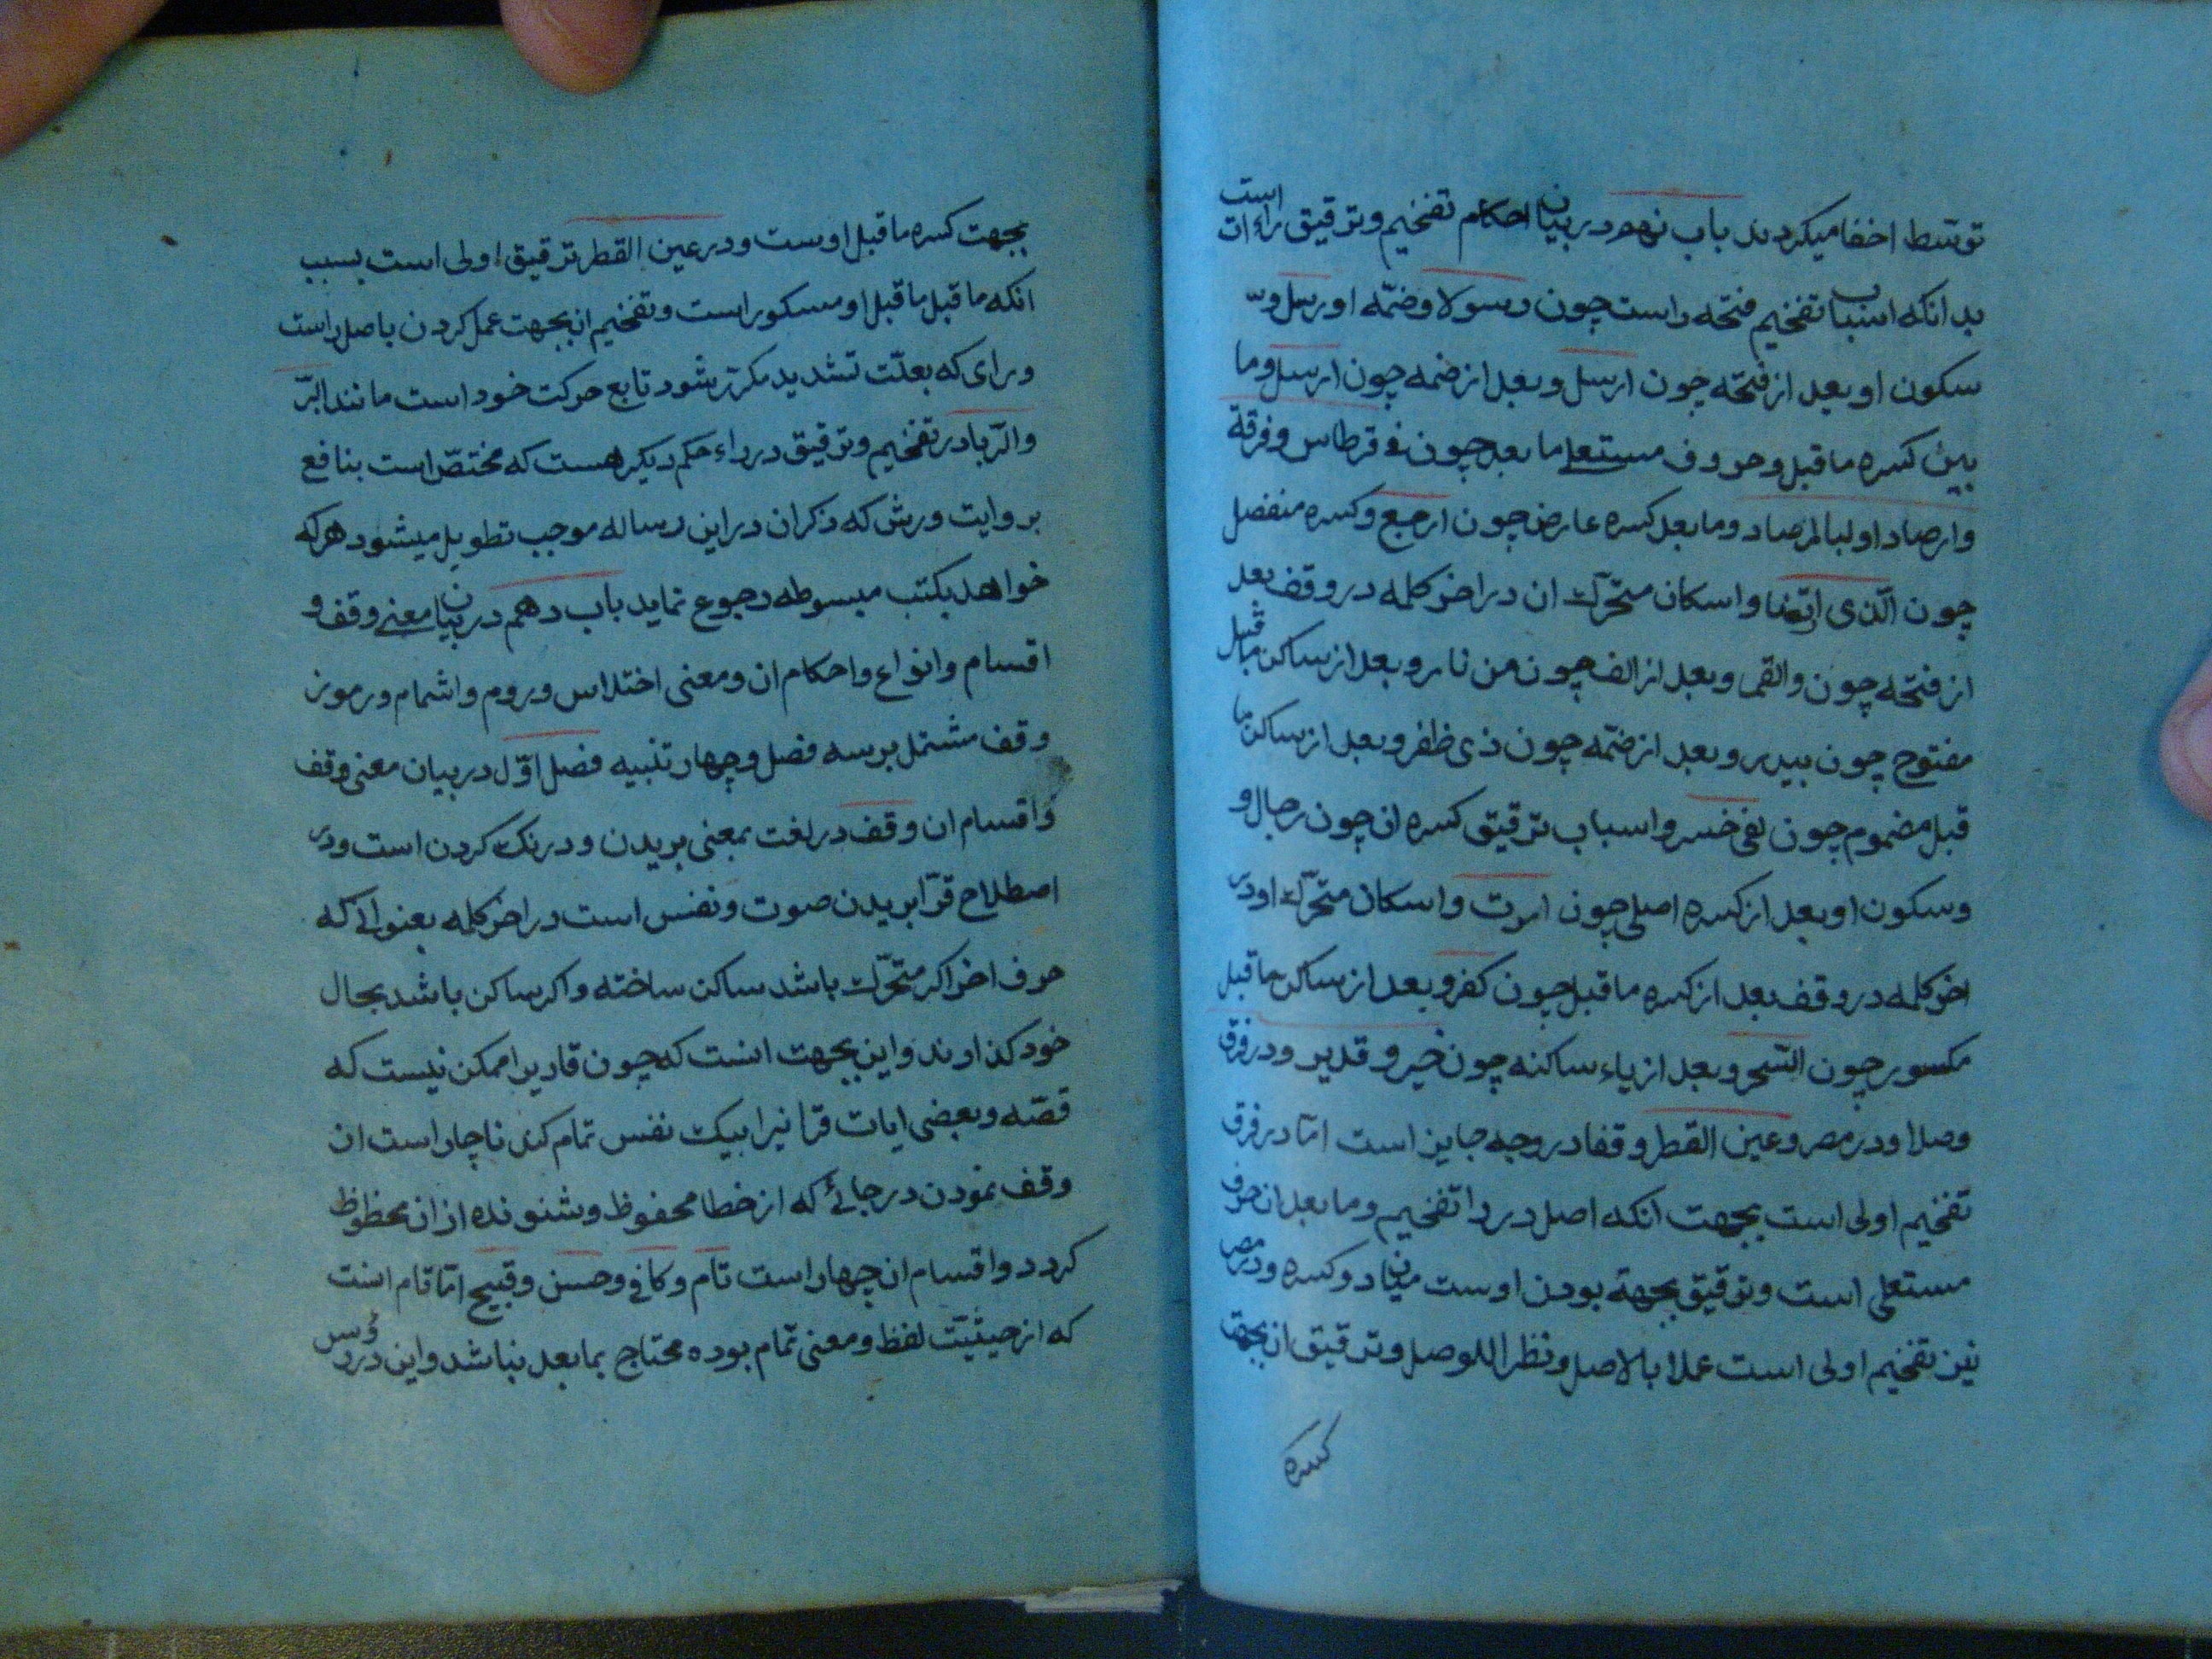 توسط اخفا میکردند باب نهم در بیان احکام تفخیم و ترقیق راءات است
بدانکه اسباب تفخیم فتحه راست چون رسولا وضمّه او رسل و
سکون او بعد از فتحه چون ارسل وبعد از ضمه چون ارسل وما
بین کسره ماقبل وحروف مستعلے مابعد چون فی قرطاس وفرقة
وارصادا ولبالمرصاد ومابعد کسره عارض چون ارجع وکسره منفصل
چون الّذی ارتضا واسکان متحرّک ان در اخر کلمه در وقف بعد
از فتحه چون والقمر وبعد از الف چون من نار وبعد از ساکن ماقبل
مفتوح چون ببدر وبعد از ضمّه چون ذی ظفر وبعد از ساکن ما
قبل مضموم چون لفی خسر واسباب ترقیق کسره ان چون رجال و
وسکون او بعد از کسره اصلی چون امرت واسکان متحرّک او در
اخر کلمه در وقف بعد از کسره ماقبل چون کفر وبعد از ساکن ماقبل
مکسور چون السّحر وبعد از یاء ساکنه چون خیر و قدیر ودر فرق
وصلا ودر مصر وعین القطر وقفا در وجه جایز است امّا در فرق
تفخیم اولی است بجهت انکه اصل در را تفخیم ومابعد ان حرف
مستعلی است وترقیق بجهة بودن اوست میان دو کسره ودر مصر
نیز تفخیم اولی است عملا بالاصل ونظرا للوصل وترقیق ان بجهت
کسره
بجهت کسره ماقبل اوست ودر عین القطر ترقیق اولی است بسبب
انکه ماقبل ماقبل او مسکور است وتفخیم ان بجهت عمل کردن باصل است
ورای که بعلّت تشدید مکرّر شود تابع حرکت خود است مانند البرّ
والرّبا در تفخیم وترقیق در راء حکم دیکر هست که مختصّ است بنافع
بروایت ورش که ذکر ان در این رساله موجب تطویل میشود هرکه
خواهد بکتب مبسوطه رجوع نماید باب دهم در بیان معنے وقف و
اقسام وانواع واحکام ان ومعنی اختلاس وروم واشمام ورموز
وقف مشتمل بر سه فصل وچهار تنبیه فصل اوّل در بیان معنی وقف
واقسام ان وقف در لغت بمعنی بریدن ودرنک کردن است ودر
اصطلاح قرّا بریدن صوت ونفس است در اخر کلمه بعنوانے که
حرف اخر اکر متحرّک باشد ساکن ساخته واکر ساکن باشد بحال
خود کذاوند واین بجهت انست که چون قاریرا ممکن نیست که
قصّه وبعضی ایات قرانیرا بیک نفس تمام کند ناچار است ان
وقف نمودن در جائے که از خطا محفوظ وشنونده از ان محظوظ
کردد واقسام ان چهار است تام وکافے وحسن وقبیح امّا تام انست
که از حیثیّت لفظ ومعنی تمام بوده محتاج بمابعد نباشد واین در